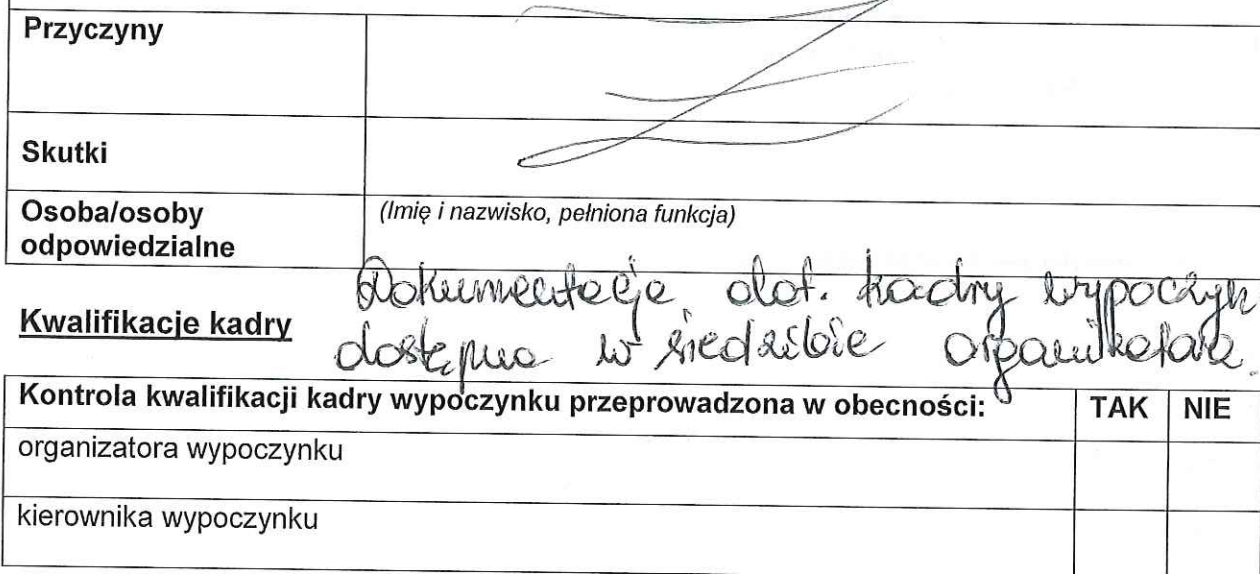 Przyczyny
Skutki
Osoba/osoby
odpowiedzialne
(Imię i nazwisko, pełniona funkcja)
Dokumentacja dot. kadry wypoczyn
Kwalifikacje kadry
dostępna w siedzibie organizatora.
Kontrola kwalifikacji kadry wypoczynku przeprowadzona w obecności: TAK NIE
organizatora wypoczynku
kierownika wypoczynku